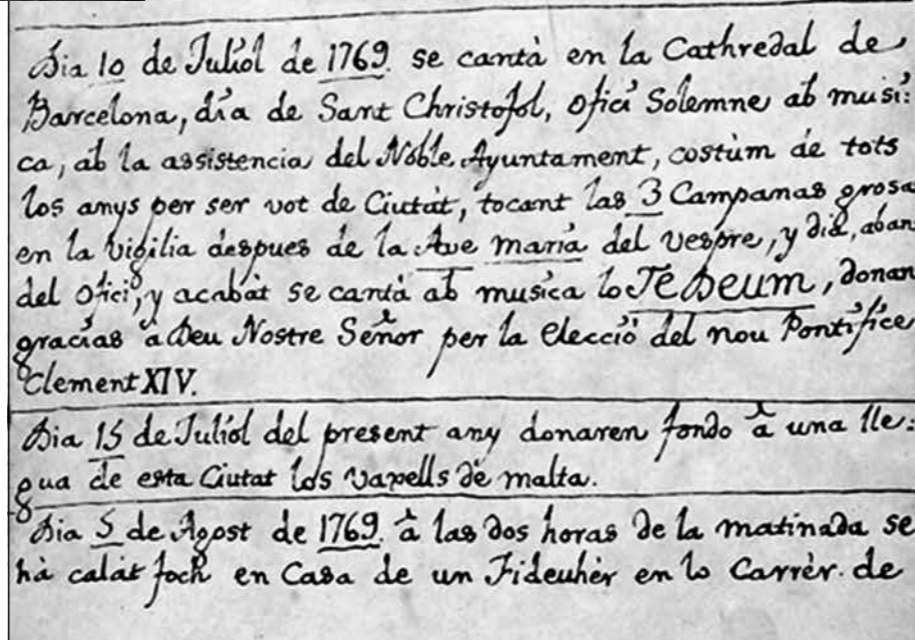 Dia 10 de Juliól de 1769. se cantà en la Cathredal de
Barcelona, día de Sant Christofol, Ofici Solemne ab musi:
ca, ab la assistencia del Noble Ayuntament, costùm de tots
los anys per ser vot de Ciutàt, tocant las 3 Campanas grosa
en la vigilia despues de la Ave maria del vespre, y dia, aban
del Ofici, y acabàt se cantà ab musica lo Te Deum, donan
gracias à Deu Nostre Señor per la Elecció del nou Pontífice
Clement XIV.
Dia 15 de Juliól del present any donaren fondo à una lle:
gua de esta Ciutat los vaxells de malta.
Dia 5 de Agost de 1769. à las dos horas de la matinada se
hà calat foch en Casa de un Fideuhèr en lo Carrèr de